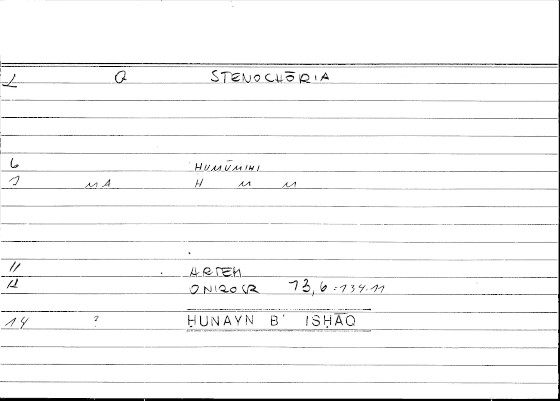 Q STENOCHŌRIA
6 HUMŪMIHI
MA H M M
11 ARTEM
12 ONIROCR 73,6 = 134.11
14 ? ḤUNAYN B' ISḤĀQ